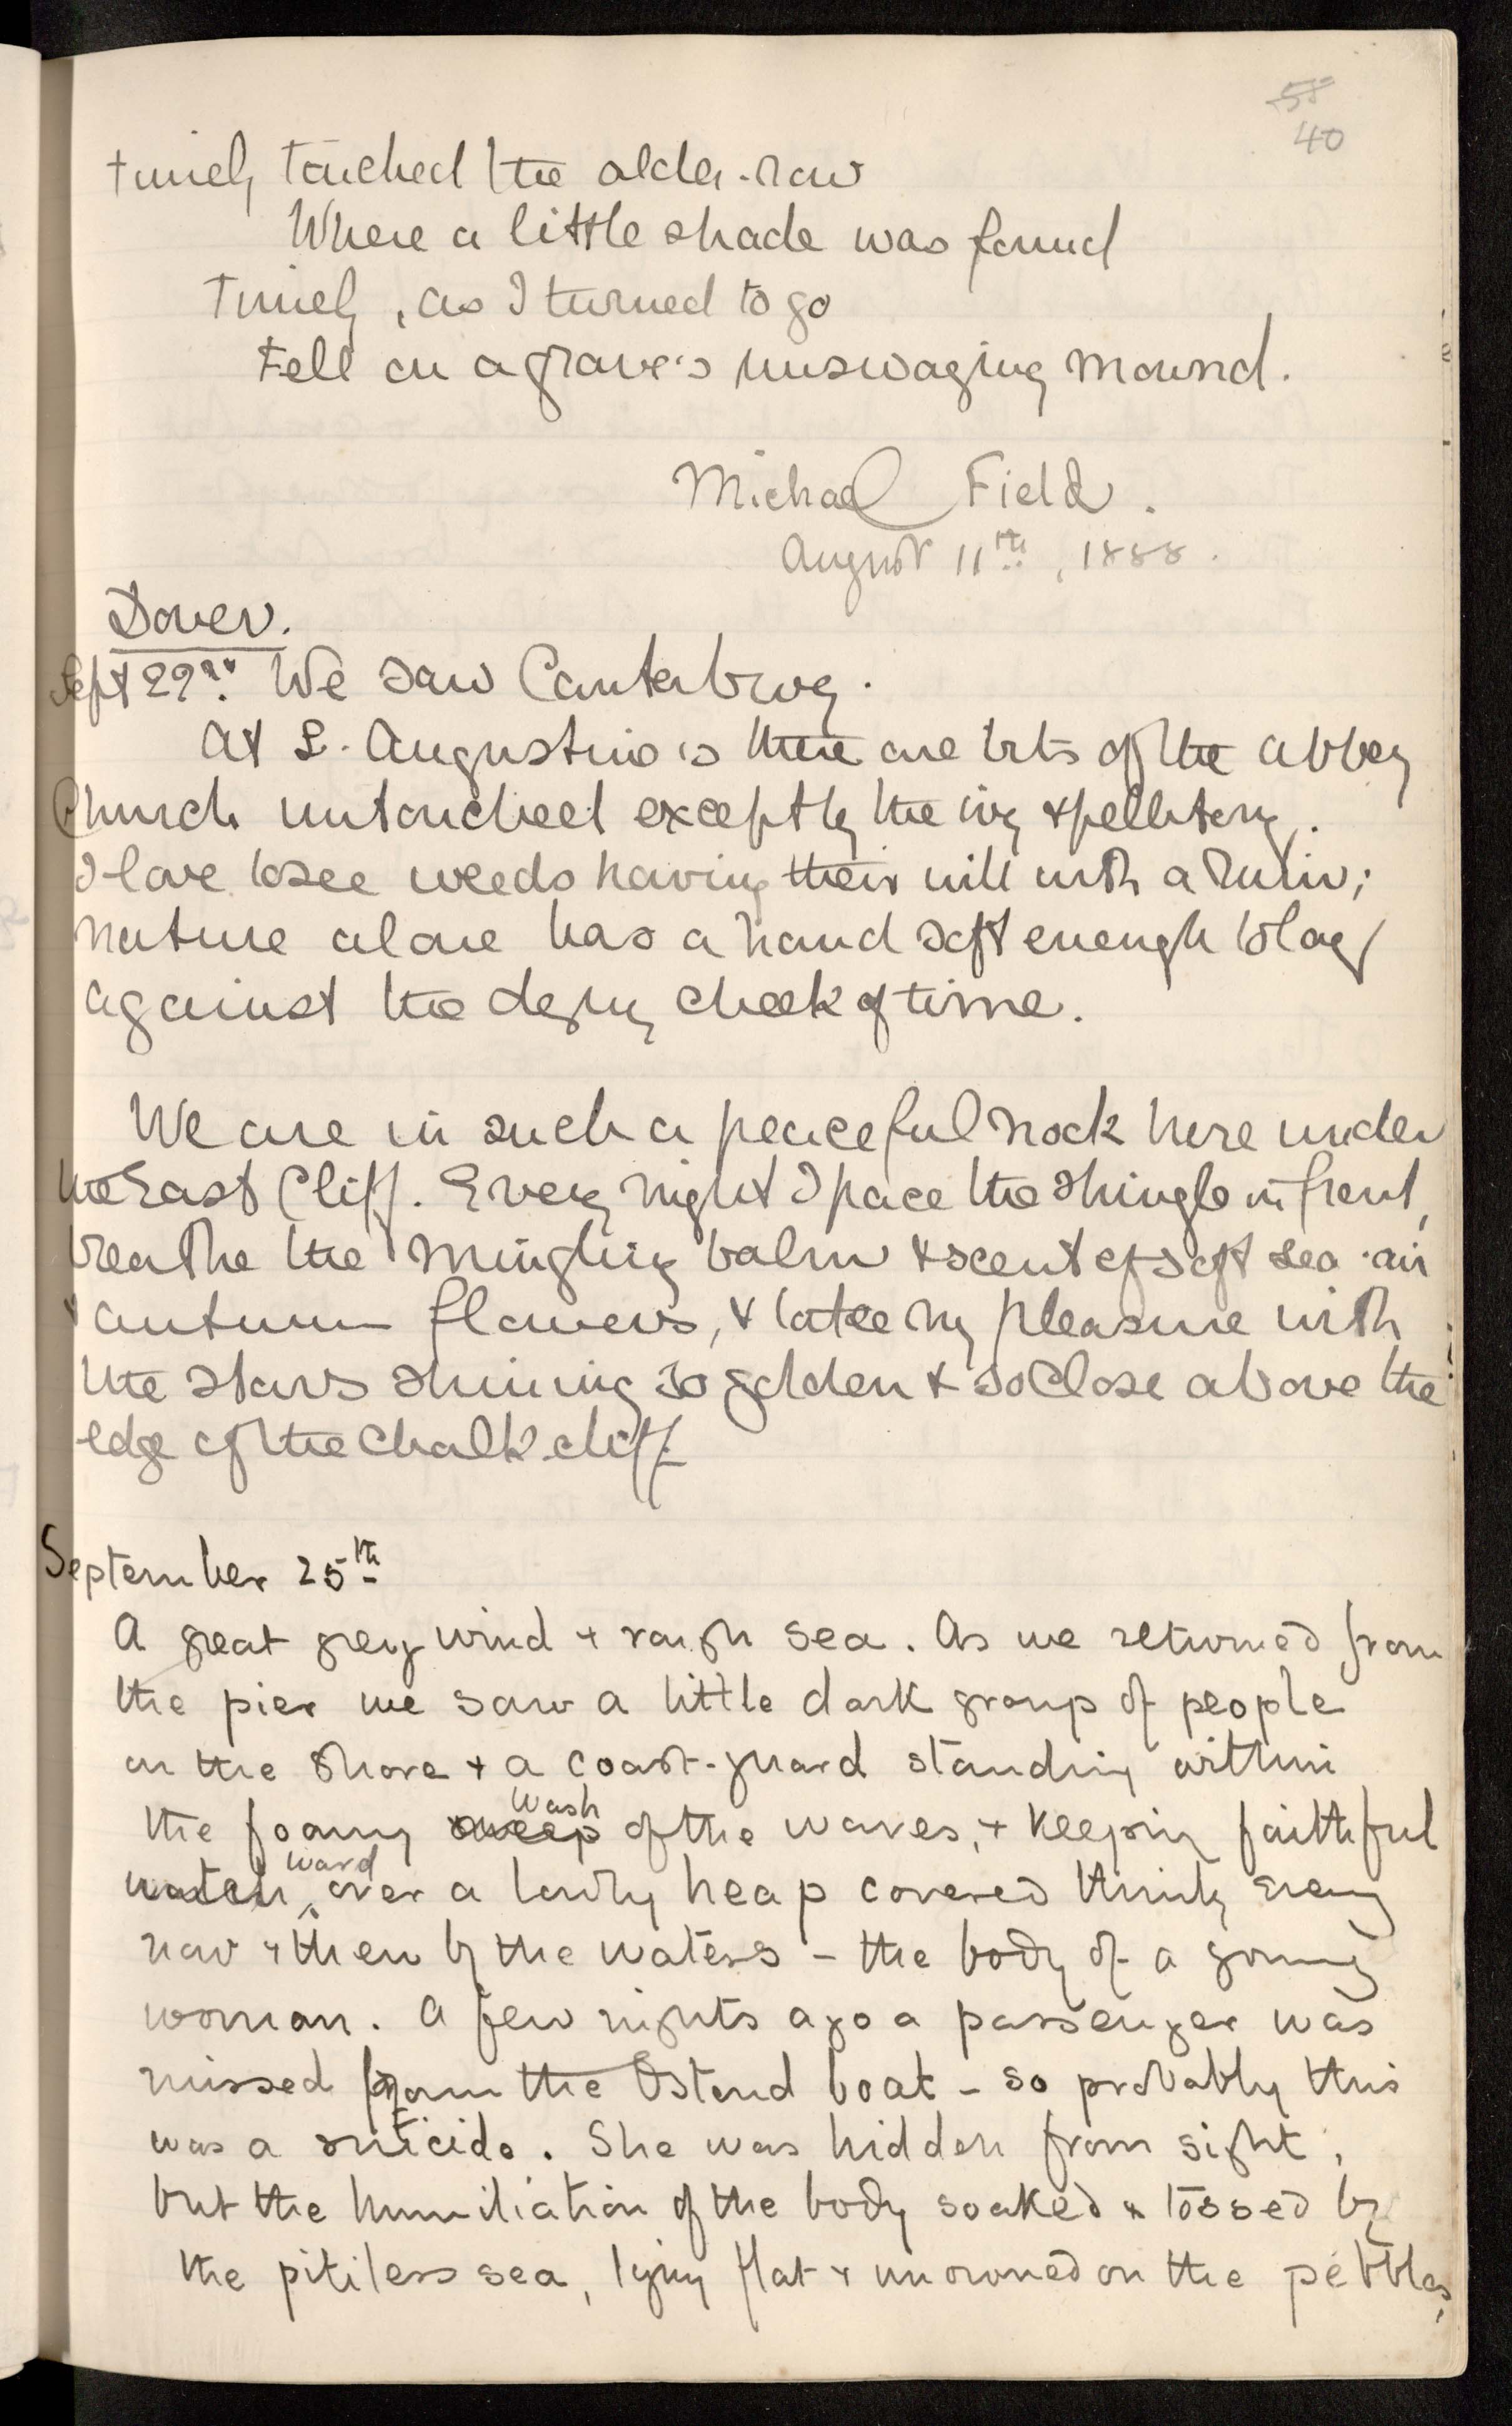 58
40
timely touched the alder-row
Where a little shade was found
Timely, as I turned to go
Fell on a grave's unswaging mound.
Michael Field.
August 11th, 1888.
Dover.
Sept 22nd. We saw Canterbury.
At S. Augustine's there are bits of the abbey
Church untouched except by the ivy & pellitory.
I love to see weeds having their will with a ruin;
nature alone has a hand soft enough to lay
against the cheek of time.
We are in such a peaceful nook here under
the East Cliff. Every night I pace the shingle in front,
breathe the mingling balm & scent of soft sea-air
& autumn flowers, & take my pleasure with
the stars shining so golden & so close above the
edge of the chalk-cliff
September 25th
A great grey wind & rough sea. As we returned from
the pier we saw a little dark group of people
on the shore & a coast-guard standing within
the foamy sweep wash of the waves, & keeping faithful
watch ward over a lowly heap covered thinly every
now & then by the waters - the body of a young
woman. A few nights ago a passenger was
missed from the Ostend boat - so probably this
was a suicide. She was hidden from sight,
but the humiliation of the body soaked & tossed by
the pitiless sea, lying flat & unowned on the pebbles,